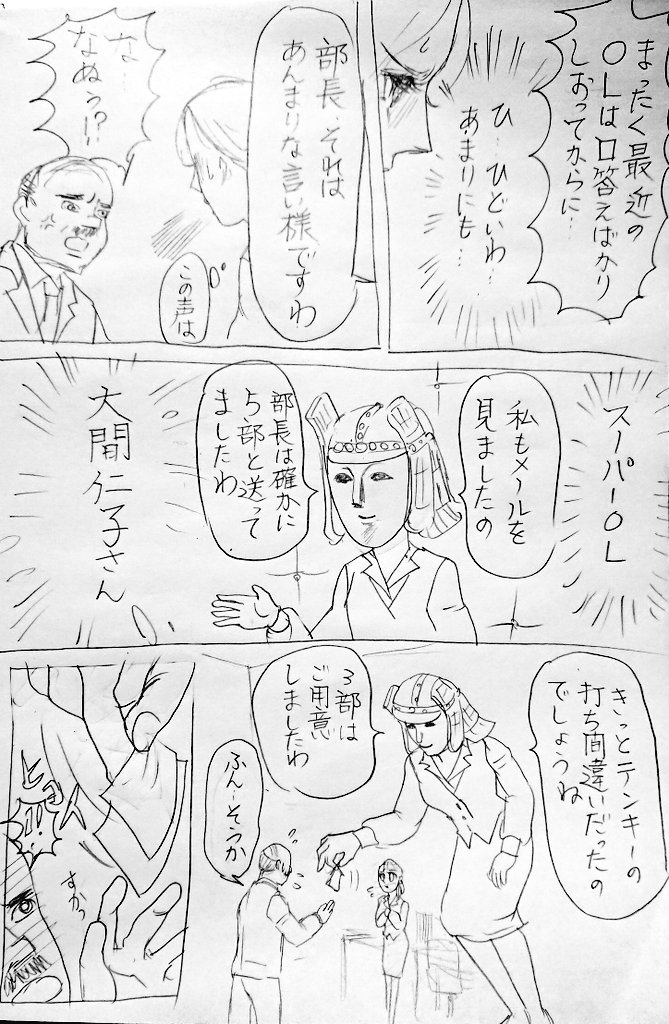 まったく最近の
OLは口答えばかり
しおってからに…
ひ…ひどいわ…
あまりにも…
部長…それは
あんまりな言い様ですわ
この声は
な…
なぬぅ!?
スーパーOL
私もメールを
見ましたの
部長は確かに
5部と送って
ましたわ
大間仁子さん
きっとテンキーの
打ち間違いだったの
でしょうね
3部は
ご用意
しましたわ
ふん…そうか
すかっ